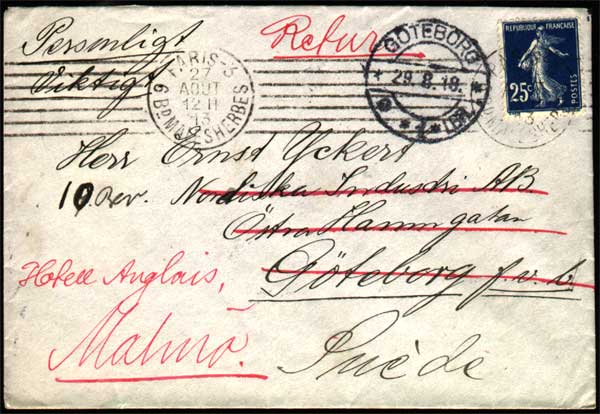 Personligt
Viktigt
Retur
PARIS-3
27
AOUT
12 H
13
6 BD MALESHERBES
GÖTEBORG
29.8.13.
REPUBLIQUE FRANÇAISE
25c
POSTES
Herr Ernst Yckert
10 Rev. Nordiska Industri AB
Östra Hamngatan
Göteborg f.v.b.
Hotell Anglais,
Malmö.
Suède